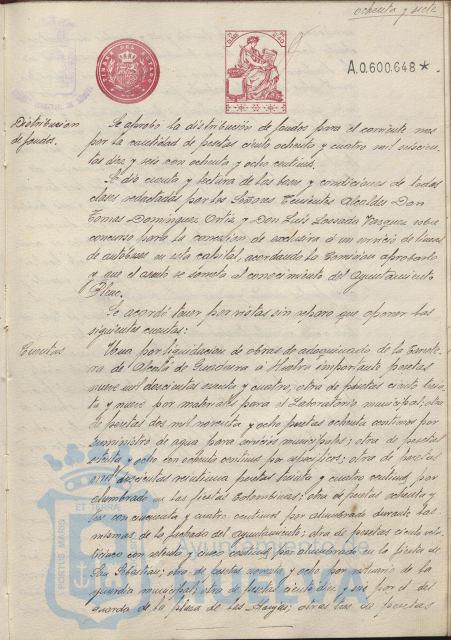 ochenta y siete
TIMBRE DEL ESTADO
A.0.600.648*
Distribucion
de fondos.
Se aprobó la distribución de fondos para el corriente mes
por la cantidad de pesetas ciento ochenta y cuatro mil
diez y seis con ochenta y ocho centimos.
Se dio cuenta y lectura de las bases y condiciones de todas
clases redactadas por los Señores Tenientes Alcaldes Don
Tomas Dominguez Ortiz y Don Luis Lossada Vazquez sobre
concurso para la concesion de exclusiva á un servicio de lineas
de autobuses en esta capital, acordando la Comision aprobarlo
y que el asunto se someta al conocimiento del Ayuntamiento
Pleno.
Se acordó tener por vistas sin reparo que oponer las
siguientes cuentas:
Cuentas
Una por liquidacion de obras de adoquinado de la Carrete-
ra de Alcalá de Guadaira á Huelva importante pesetas
nueve mil doscientas y cuatro; otra de pesetas ciento
y nueve por materiales para el Laboratorio municipal; otra
de pesetas dos mil novecientas y ocho pesetas ochenta centimos por
suministro de agua para servicios municipales; otra de pesetas
y ocho con ochenta centimos por especificos; otra de pesetas
mil doscientas pesetas treinta y cuatro centimos, por
alumbrado en las fiestas Colombinas; otra de pesetas ochenta y
con cincuenta y cuatro centimos por alumbrado durante las
mismas de la fachada del Ayuntamiento; otra de pesetas ciento
con y cinco centimos por alumbrado en la fiesta de
San Sebastian; otra de pesetas y ocho por de la
guardia municipal; otra de pesetas y seis por el del
guarda de la plaza de las Monjas; otras tres de pesetas
ET TERRA
PORTUS MARIS
Ayuntamiento de
HUELVA